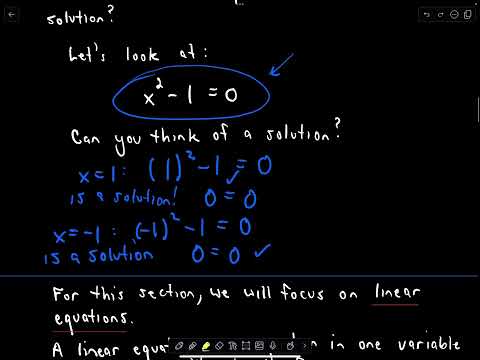 solution?
Let's look at:
x² - 1 = 0
Can you think of a solution?
x=1: (1)² - 1 = 0
is a solution! 0 = 0 ✓
x=-1: (-1)² - 1 = 0
is a solution 0 = 0 ✓
For this section, we will focus on linear
equations.
A linear in one variable